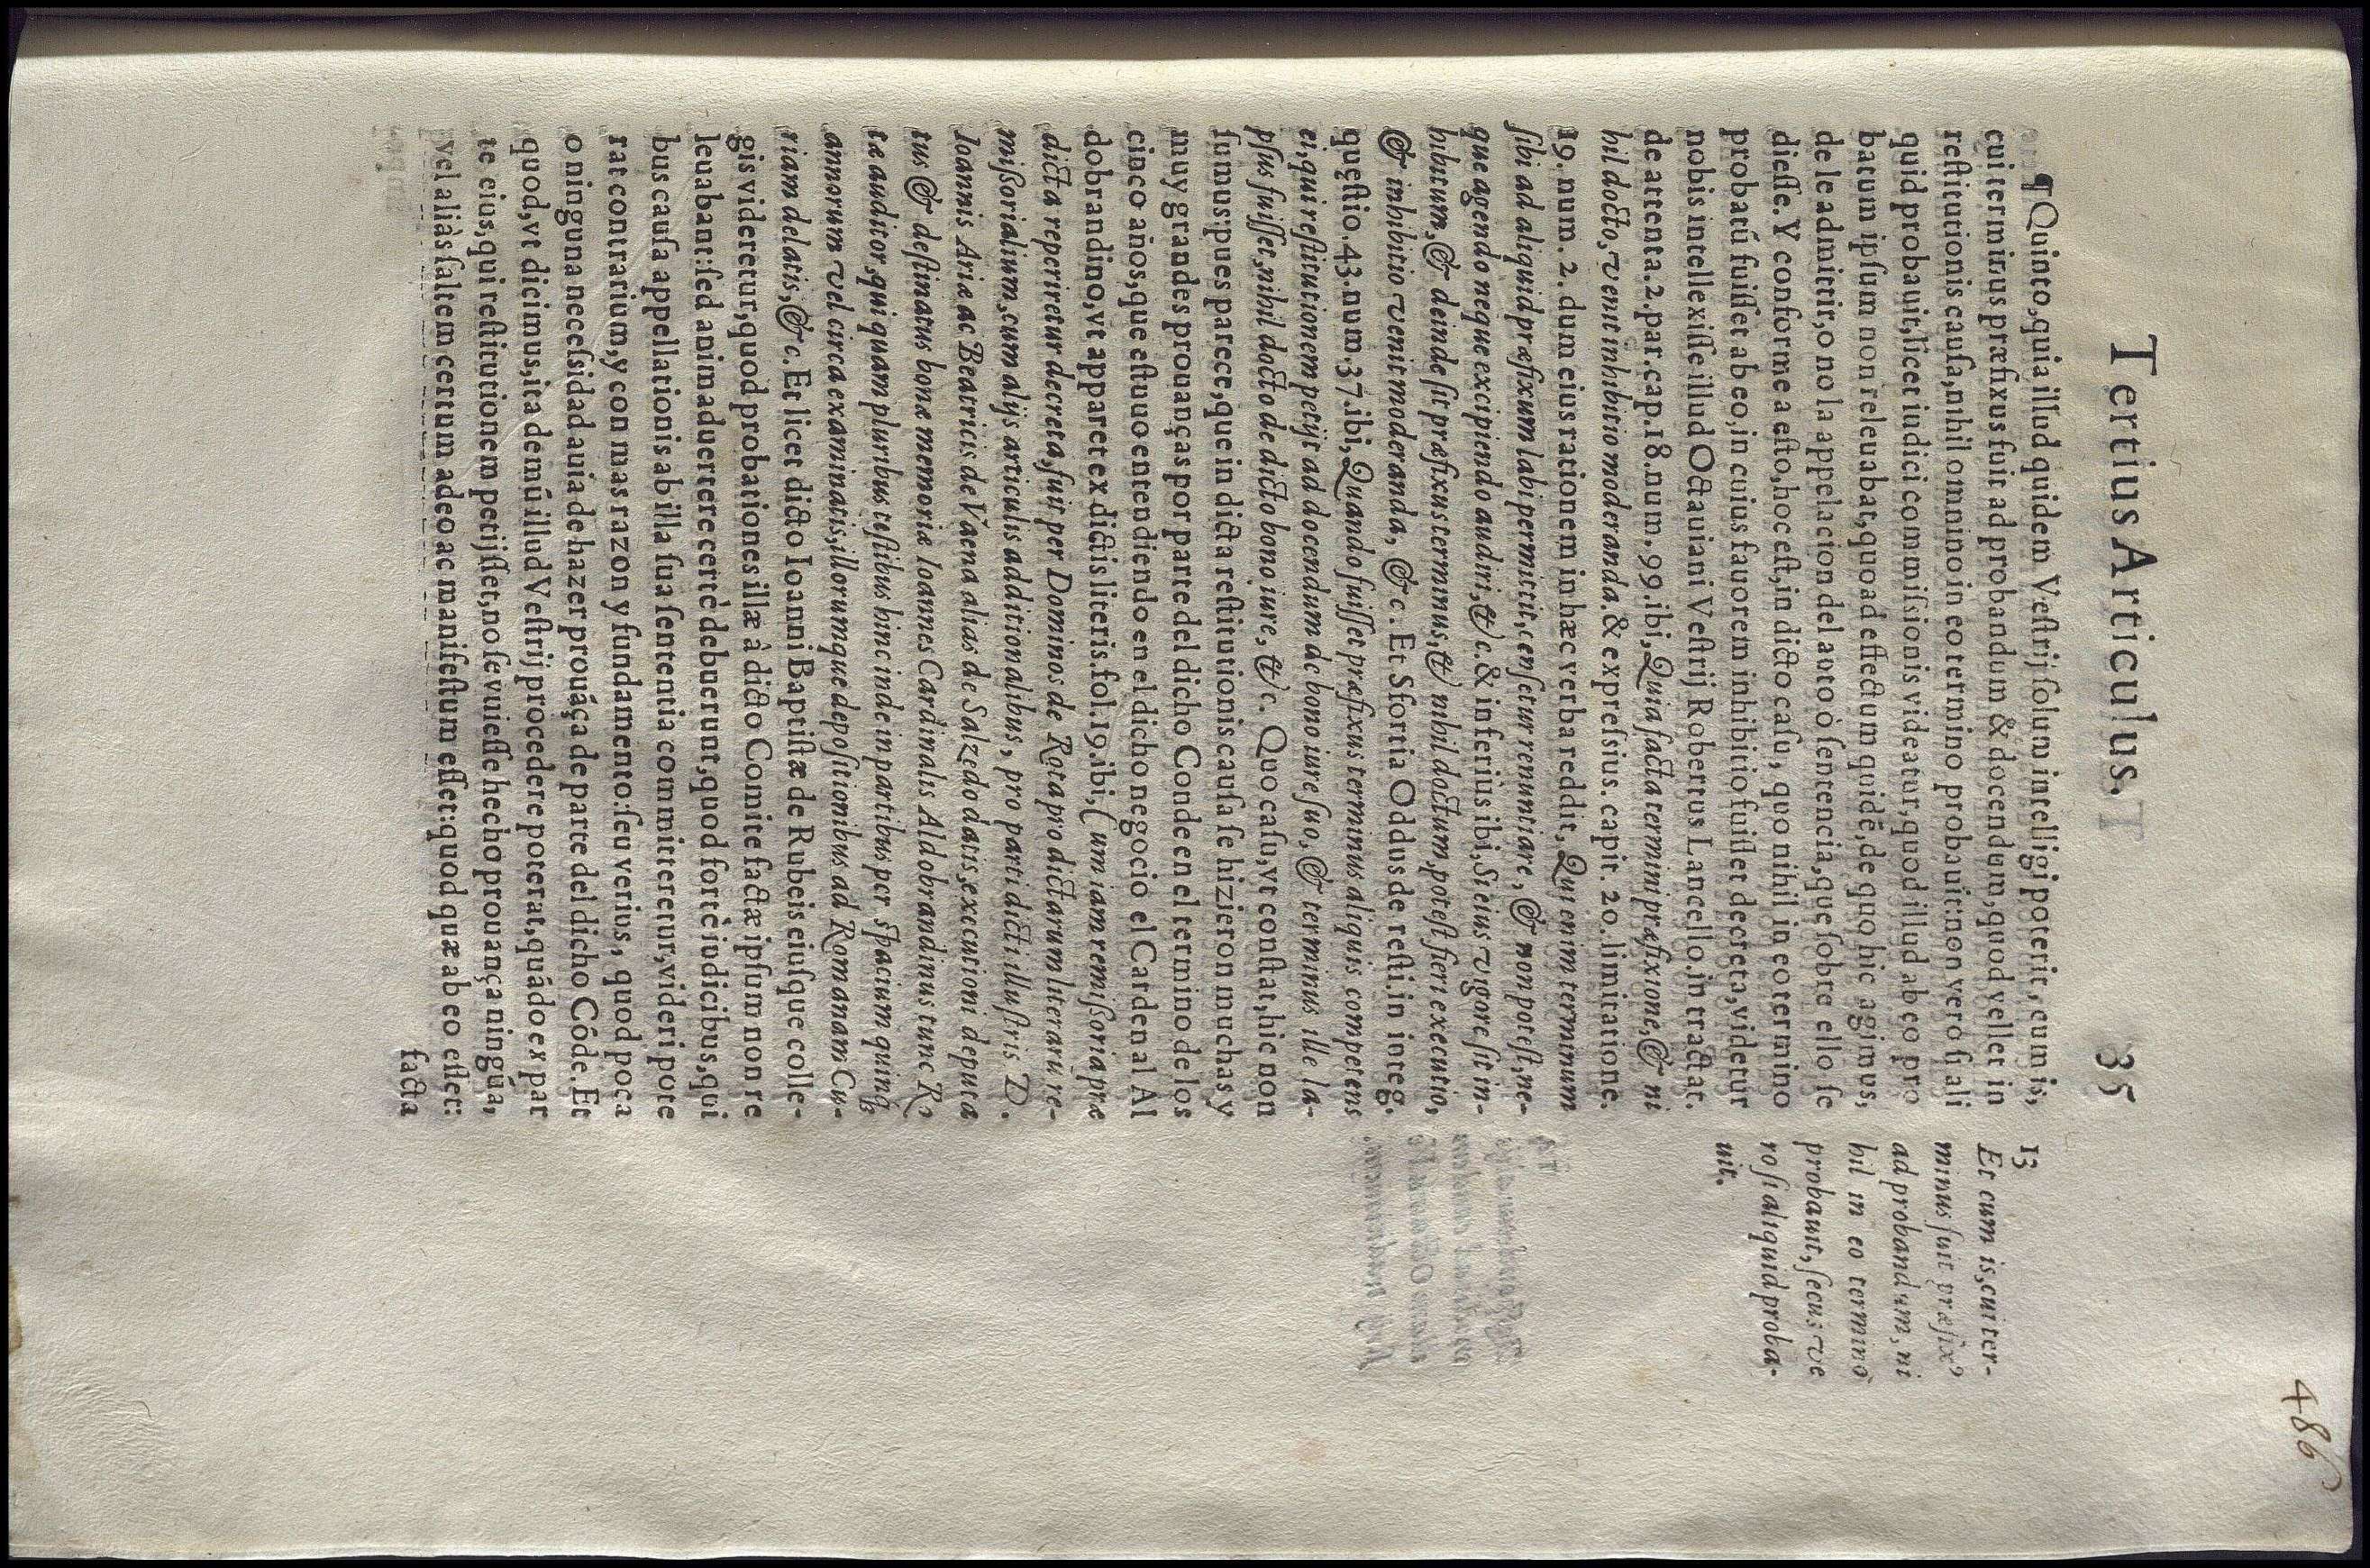 486
Tertius Articulus. 35
¶ Quinto, quia illud quidem Vestrij solum intelligi poterit, cum is,
cui terminus præfixus fuit ad probandum & docendum, quod vellet in
restitutionis causa, nihil omnino in eo termino probauit: non vero si ali
quid probauit, licet iudici commissionis videatur, quod illud ab eo pro
batum ipsum non releuabat, quoad effectum quidē, de quo hic agimus,
de le admitir, o no la appelacion del auto ò sentencia, que sobre ello se
diesse. Y conforme a esto, hoc est, in dicto casu, quo nihil in eo termino
probatū fuisset ab eo, in cuius fauorem inhibitio fuisset decreta, videtur
nobis intellexisse illud Octauiani Vestrij Robertus Lancello. in tractat.
de attenta. 2. par. cap. 18. num. 99. ibi, Quia facta termini præfixione, & ni
hil docto, venit inhibitio moderanda. & expressius. capit. 20. limitatione.
19. num. 2. dum eius rationem in hæc verba reddit, Qui enim terminum
sibi ad aliquid præfixum labi permittit, censetur renuntiare, & non potest, ne-
que agendo neque excipiendo audiri, & c. & inferiùs ibi, Si eius vigore sit in-
hibitum, & deinde sit præfixus terminus, & nihil doctum, potest fieri executio,
& inhibitio venit moderanda, & c. Et Sfortia Oddus de resti. in integ.
questio. 43. num. 37. ibi, Quando fuisset præfixus terminus aliquis competens
ei, qui restitutionem petijt ad docendum de bono iure suo, & terminus ille la-
psus fuisset, nihil docto de dicto bono iure, & c. Quo casu, vt constat, hic non
sumus: pues parece, que in dicta restitutionis causa se hizieron muchas y
muy grandes prouanças por parte del dicho Conde en el termino de los
cinco años, que estuuo entendiendo en el dicho negocio el Cardenal Al
dobrandino, vt apparet ex dictis literis. fol. 19. ibi, Cum iam remissoria præ
dicta reperiretur decreta, fuit per Dominos de Rota pro dictarum literarū re-
missorialium, cum alijs articulis additionalibus, pro parti dicti illustris D.
Ioannis Ariæ ac Beatricis de Vaena alias de Salzedo datis, executioni deputa
tus & destinatus bonæ memoriæ Ioannes Cardinalis Aldobrandinus tunc Ro
tæ auditor, qui quam pluribus testibus hinc inde in partibus per spacium quinq;
annorum vel circa examinatis, illorumque depositionibus ad Romanam Cu-
riam delatis, & c. Et licet dicto Ioanni Baptistæ de Rubeis eiusque colle-
gis videretur, quod probationes illæ à dicto Comite factæ ipsum non re
leuabant: sed animaduertere certè debuerunt, quod fortè iudicibus, qui
bus causa appellationis ab illa sua sententia committeretur, videri pote
rat contrarium, y con mas razon y fundamento: seu verius, quod poca
o ninguna necessidad auia de hazer prouāça de parte del dicho Cōde. Et
quod, vt dicimus, ita demū illud Vestrij procedere poterat, quādo ex par
te eius, qui restitutionem petijsset, no se vuiesse hecho prouança ningūa,
vel aliàs saltem certum adeo ac manifestum esset: quod quæ ab eo esset:
facta
13
Et cum is, cui ter-
minus fuit præfix⁹
ad probandum, ni
hil in eo termino
probauit, secus ve
ro si aliquid proba-
uit.